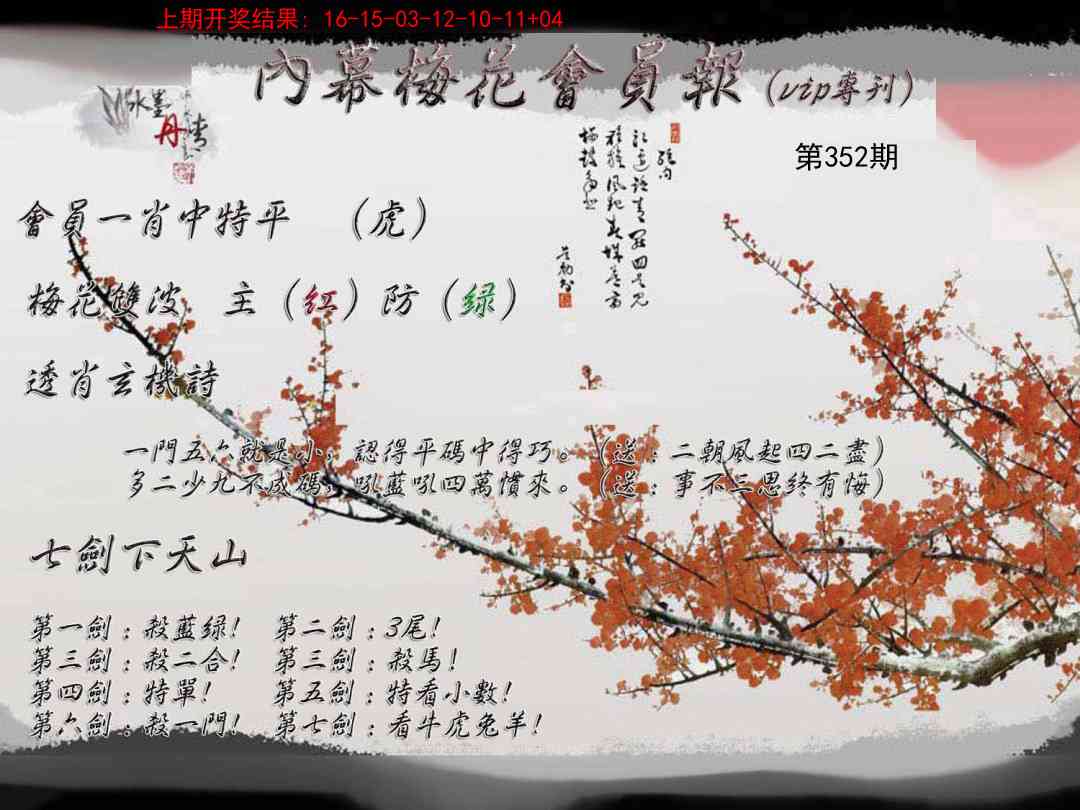 上期开奖结果: 16-15-03-12-10-11+04
內幕梅花會員報(vip專刊)
水墨丹青
第352期
會員一肖中特平 (虎)
梅花雙波 主(红)防(绿)
透肖玄機詩
一門五六就是小,認得平碼中得巧。(送:二朝風起四二盡)
多二少九不成碼,吼藍吼四萬慣來。(送:事不三思終有悔)
七劍下天山
第一劍:殺藍绿! 第二劍:3尾!
第三劍:殺二合! 第三劍:殺馬!
第四劍:特單! 第五劍:特看小數!
第六劍:殺一門! 第七劍:看牛虎兔羊!